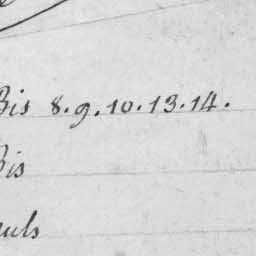 Bis 8. 9. 10. 13. 14.
Bis